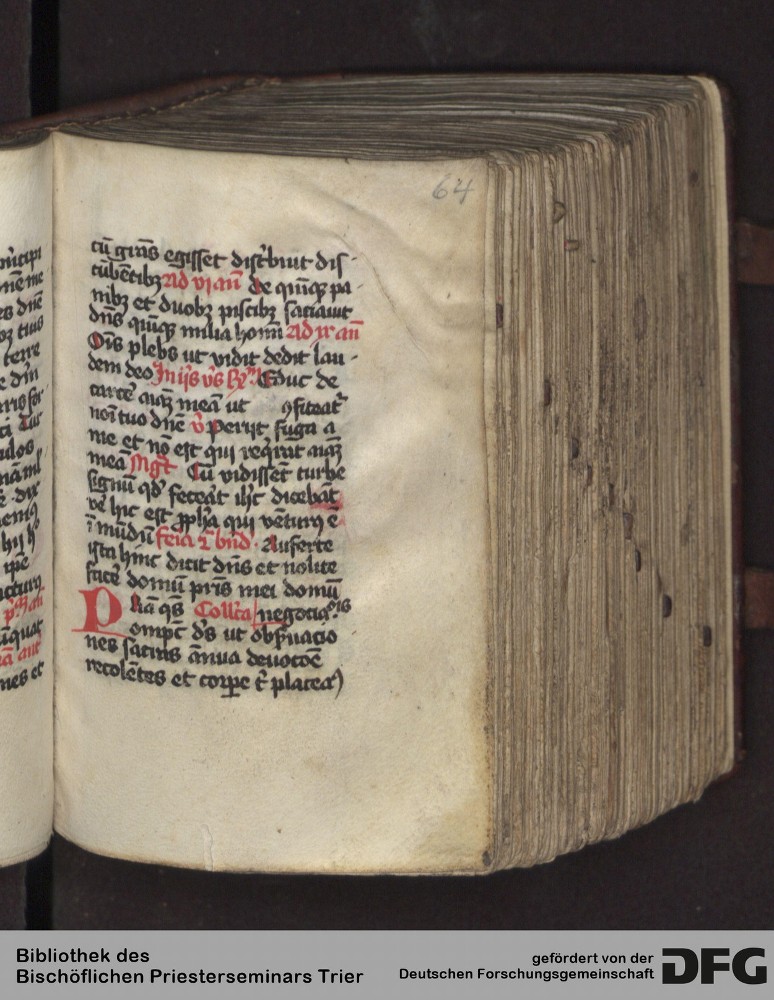 64
cū grās egisset distͥbuit dis-
cūbētibꝫ Ad vi añ de quīqꝫ pa-
nibꝫ et duobꝫ piscibꝫ saciauit
dn̄s quīqꝫ milia hoīm Ad ix añ
Oīs plebs ut vidit dedit lau-
dem deo In ijs v̄s Educ de
carcē aīaꝫ meā ut ꝯfiteat᷑
noī tuo dnē v̄ Periit fuga a
me et nō est qui reqͥrat aīaꝫ
meā Mgͣt Cū vidissēt turbe
signū qd̓ fecēat ih̄c dicebāt
ve͛ hic est ꝓph̄a qui vētur᷒ ē
ī mūdū feͥa ẜ bn̄d Auferte
ista hinc dicit dn̄s et nolite
facē domū pris mei domū
P Collͨta negociac̄oīs
ut obẜuacio
nes sacras ānua deuocōe
recolētes et corꝑe t̄ placeaꝰ
Bibliothek des
Bischöflichen Priesterseminars Trier
gefördert von der
Deutschen Forschungsgemeinschaft
DFG